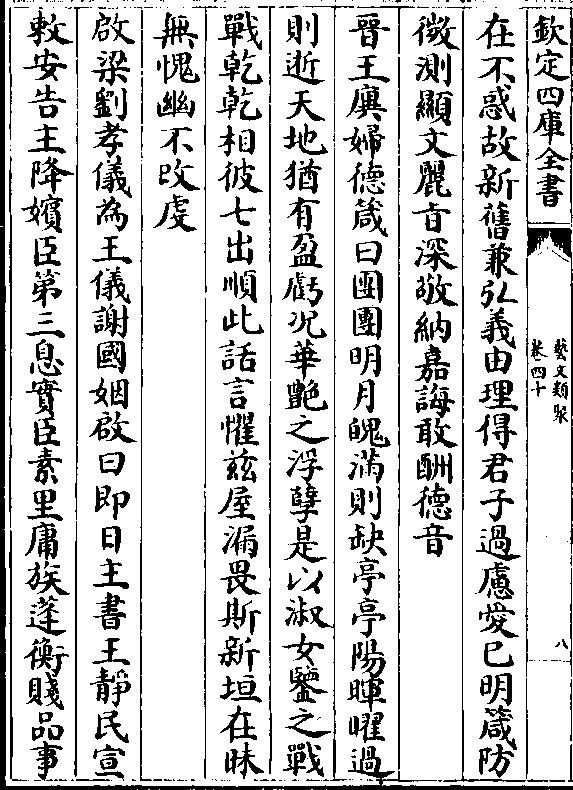 欽定四庫全書
藝文類聚
卷四十
八
在不惑故新舊兼弘義由理得君子過慮愛已明箴防
微測顯文麗旨深敬納嘉誨敢酬德音
晉王廙婦德箴曰團團明月魄滿則缺亭亭陽暉曜過
則逝天地猶有盈虧況華艷之浮孽是以淑女鑒之戰
戰乾乾相彼七出順此話言懼茲屋漏畏斯新垣在昧
無愧幽不改虔
啟梁劉孝儀為王儀謝國姻啟曰即日主書王靜民宣
敕安吉主降嬪臣第三息實臣素里庸族蓬衡賤品事